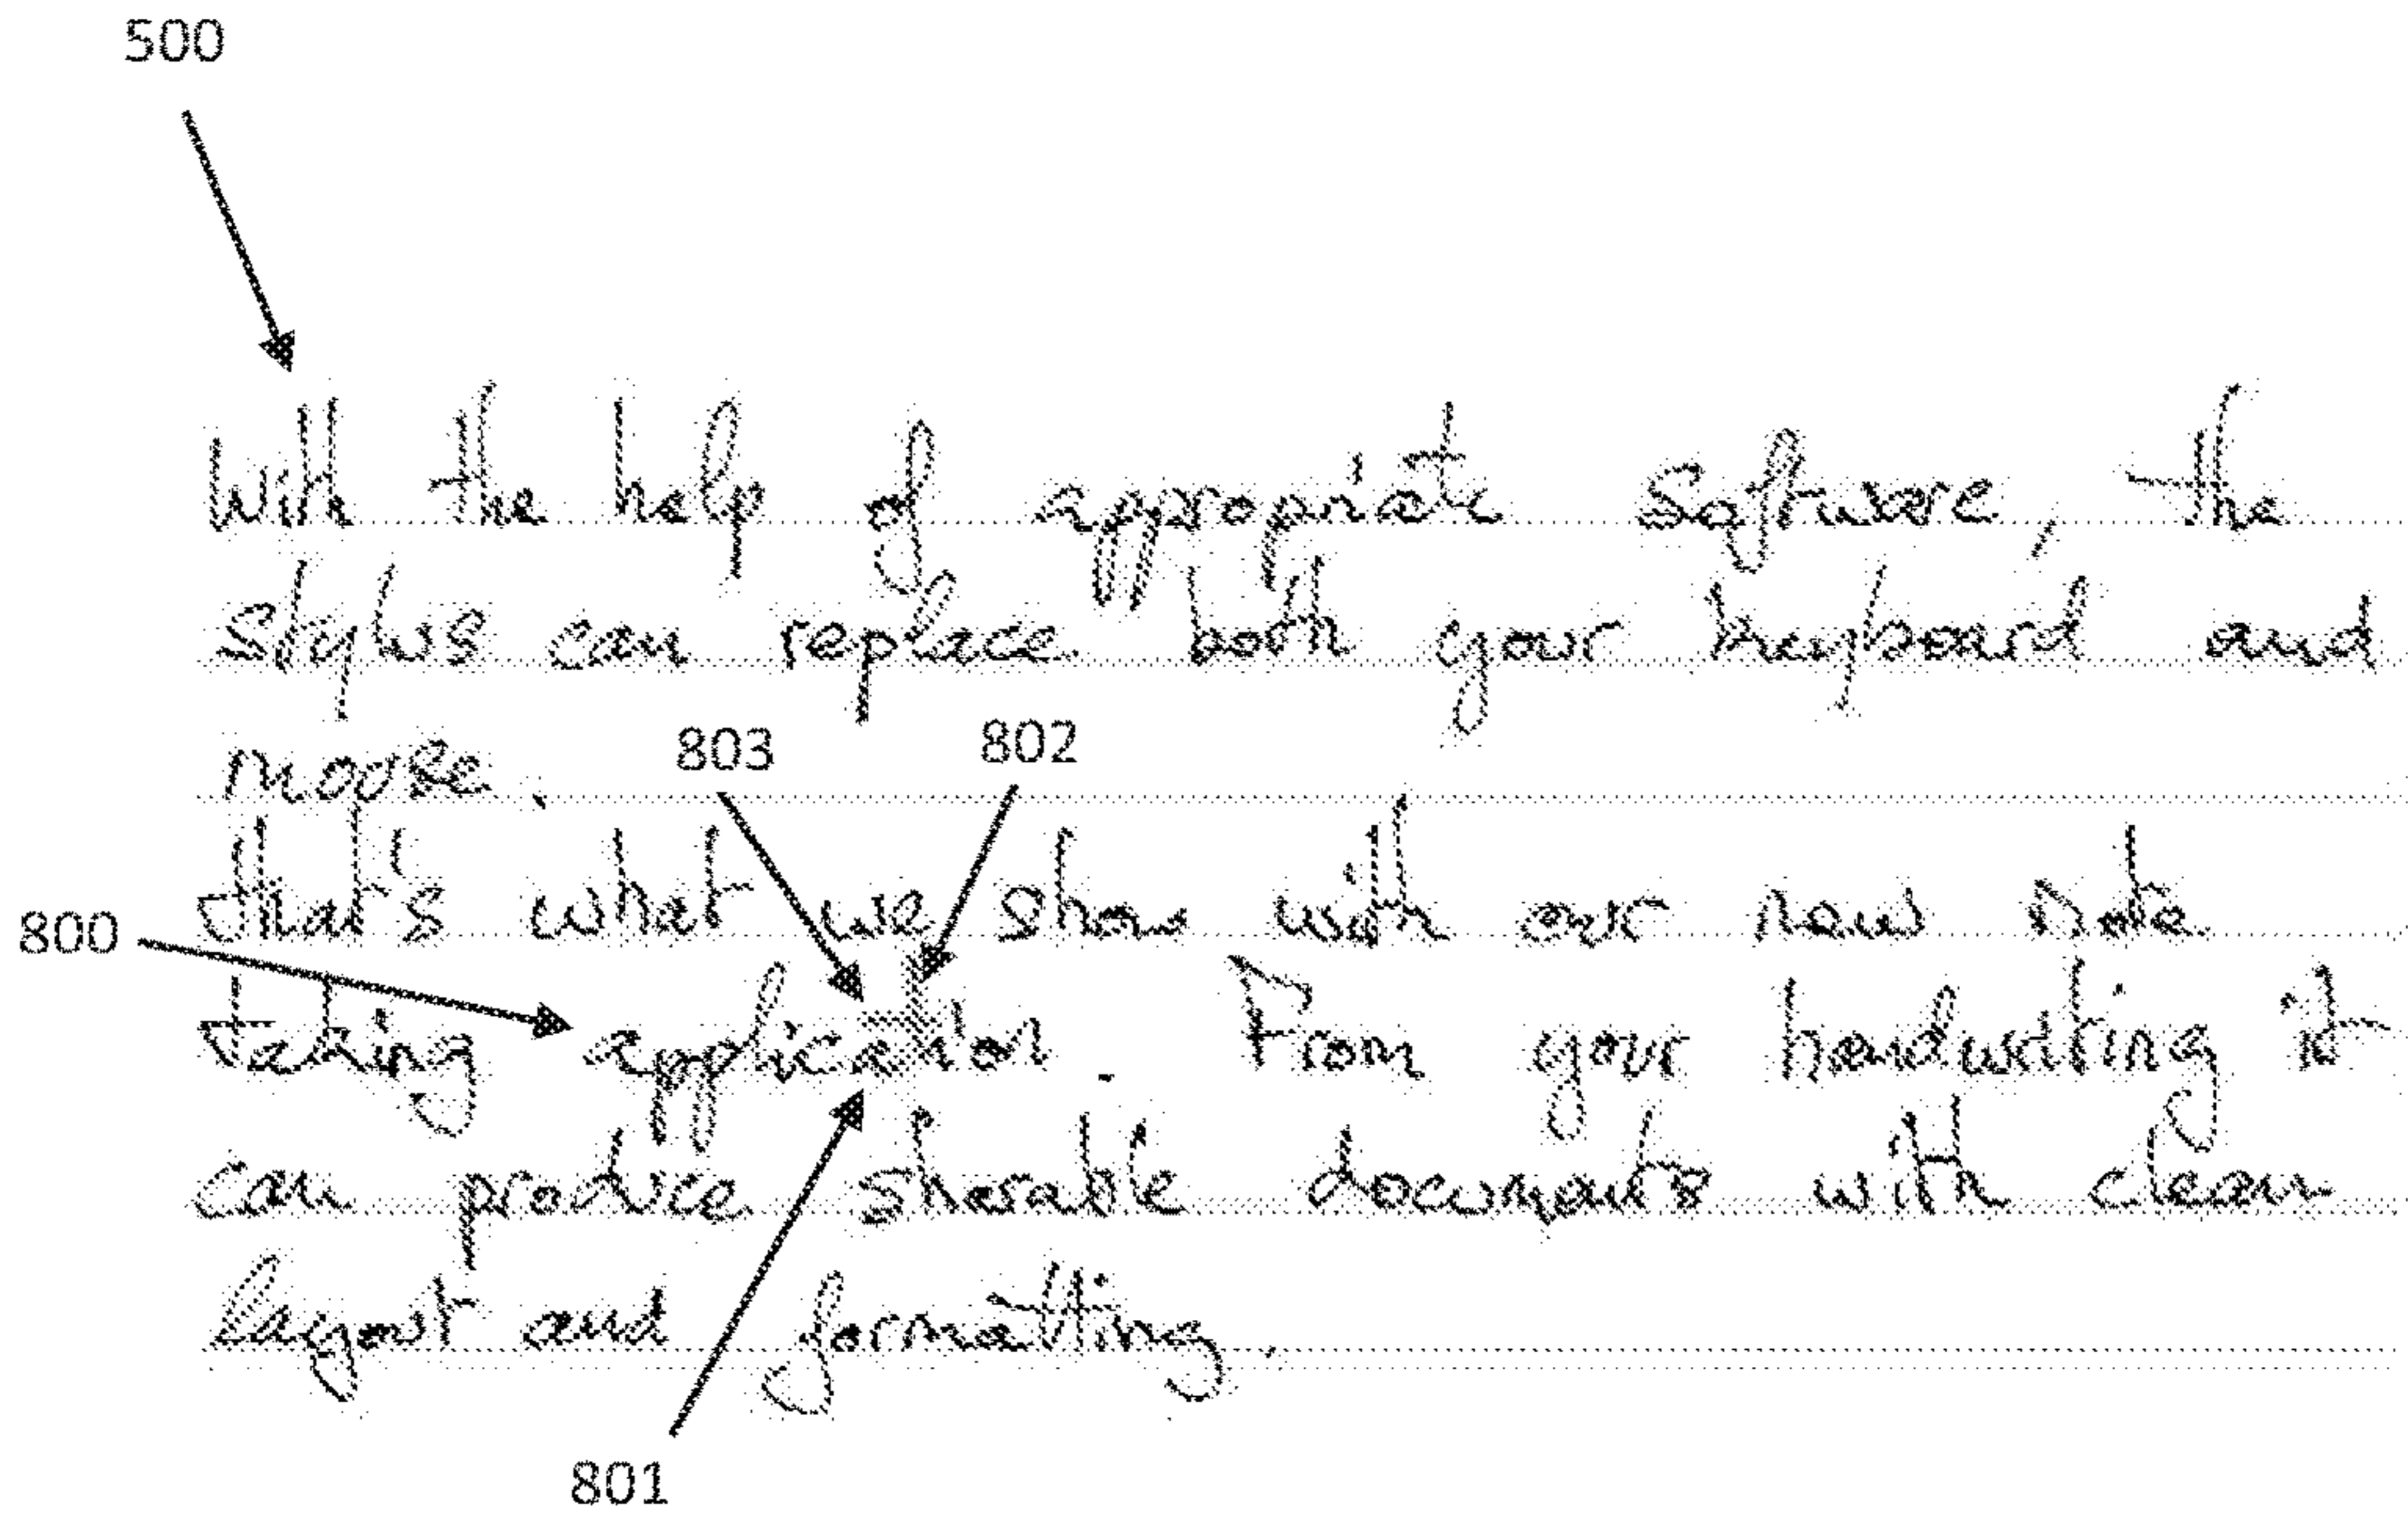 500
With the help of appropriate software, the
stylus can replace both your keyboard and
mouse.
803 802
that's what we show with our new note
800
taking application. From your handwriting it
can produce sharable documents with clean
layout and formatting.
801